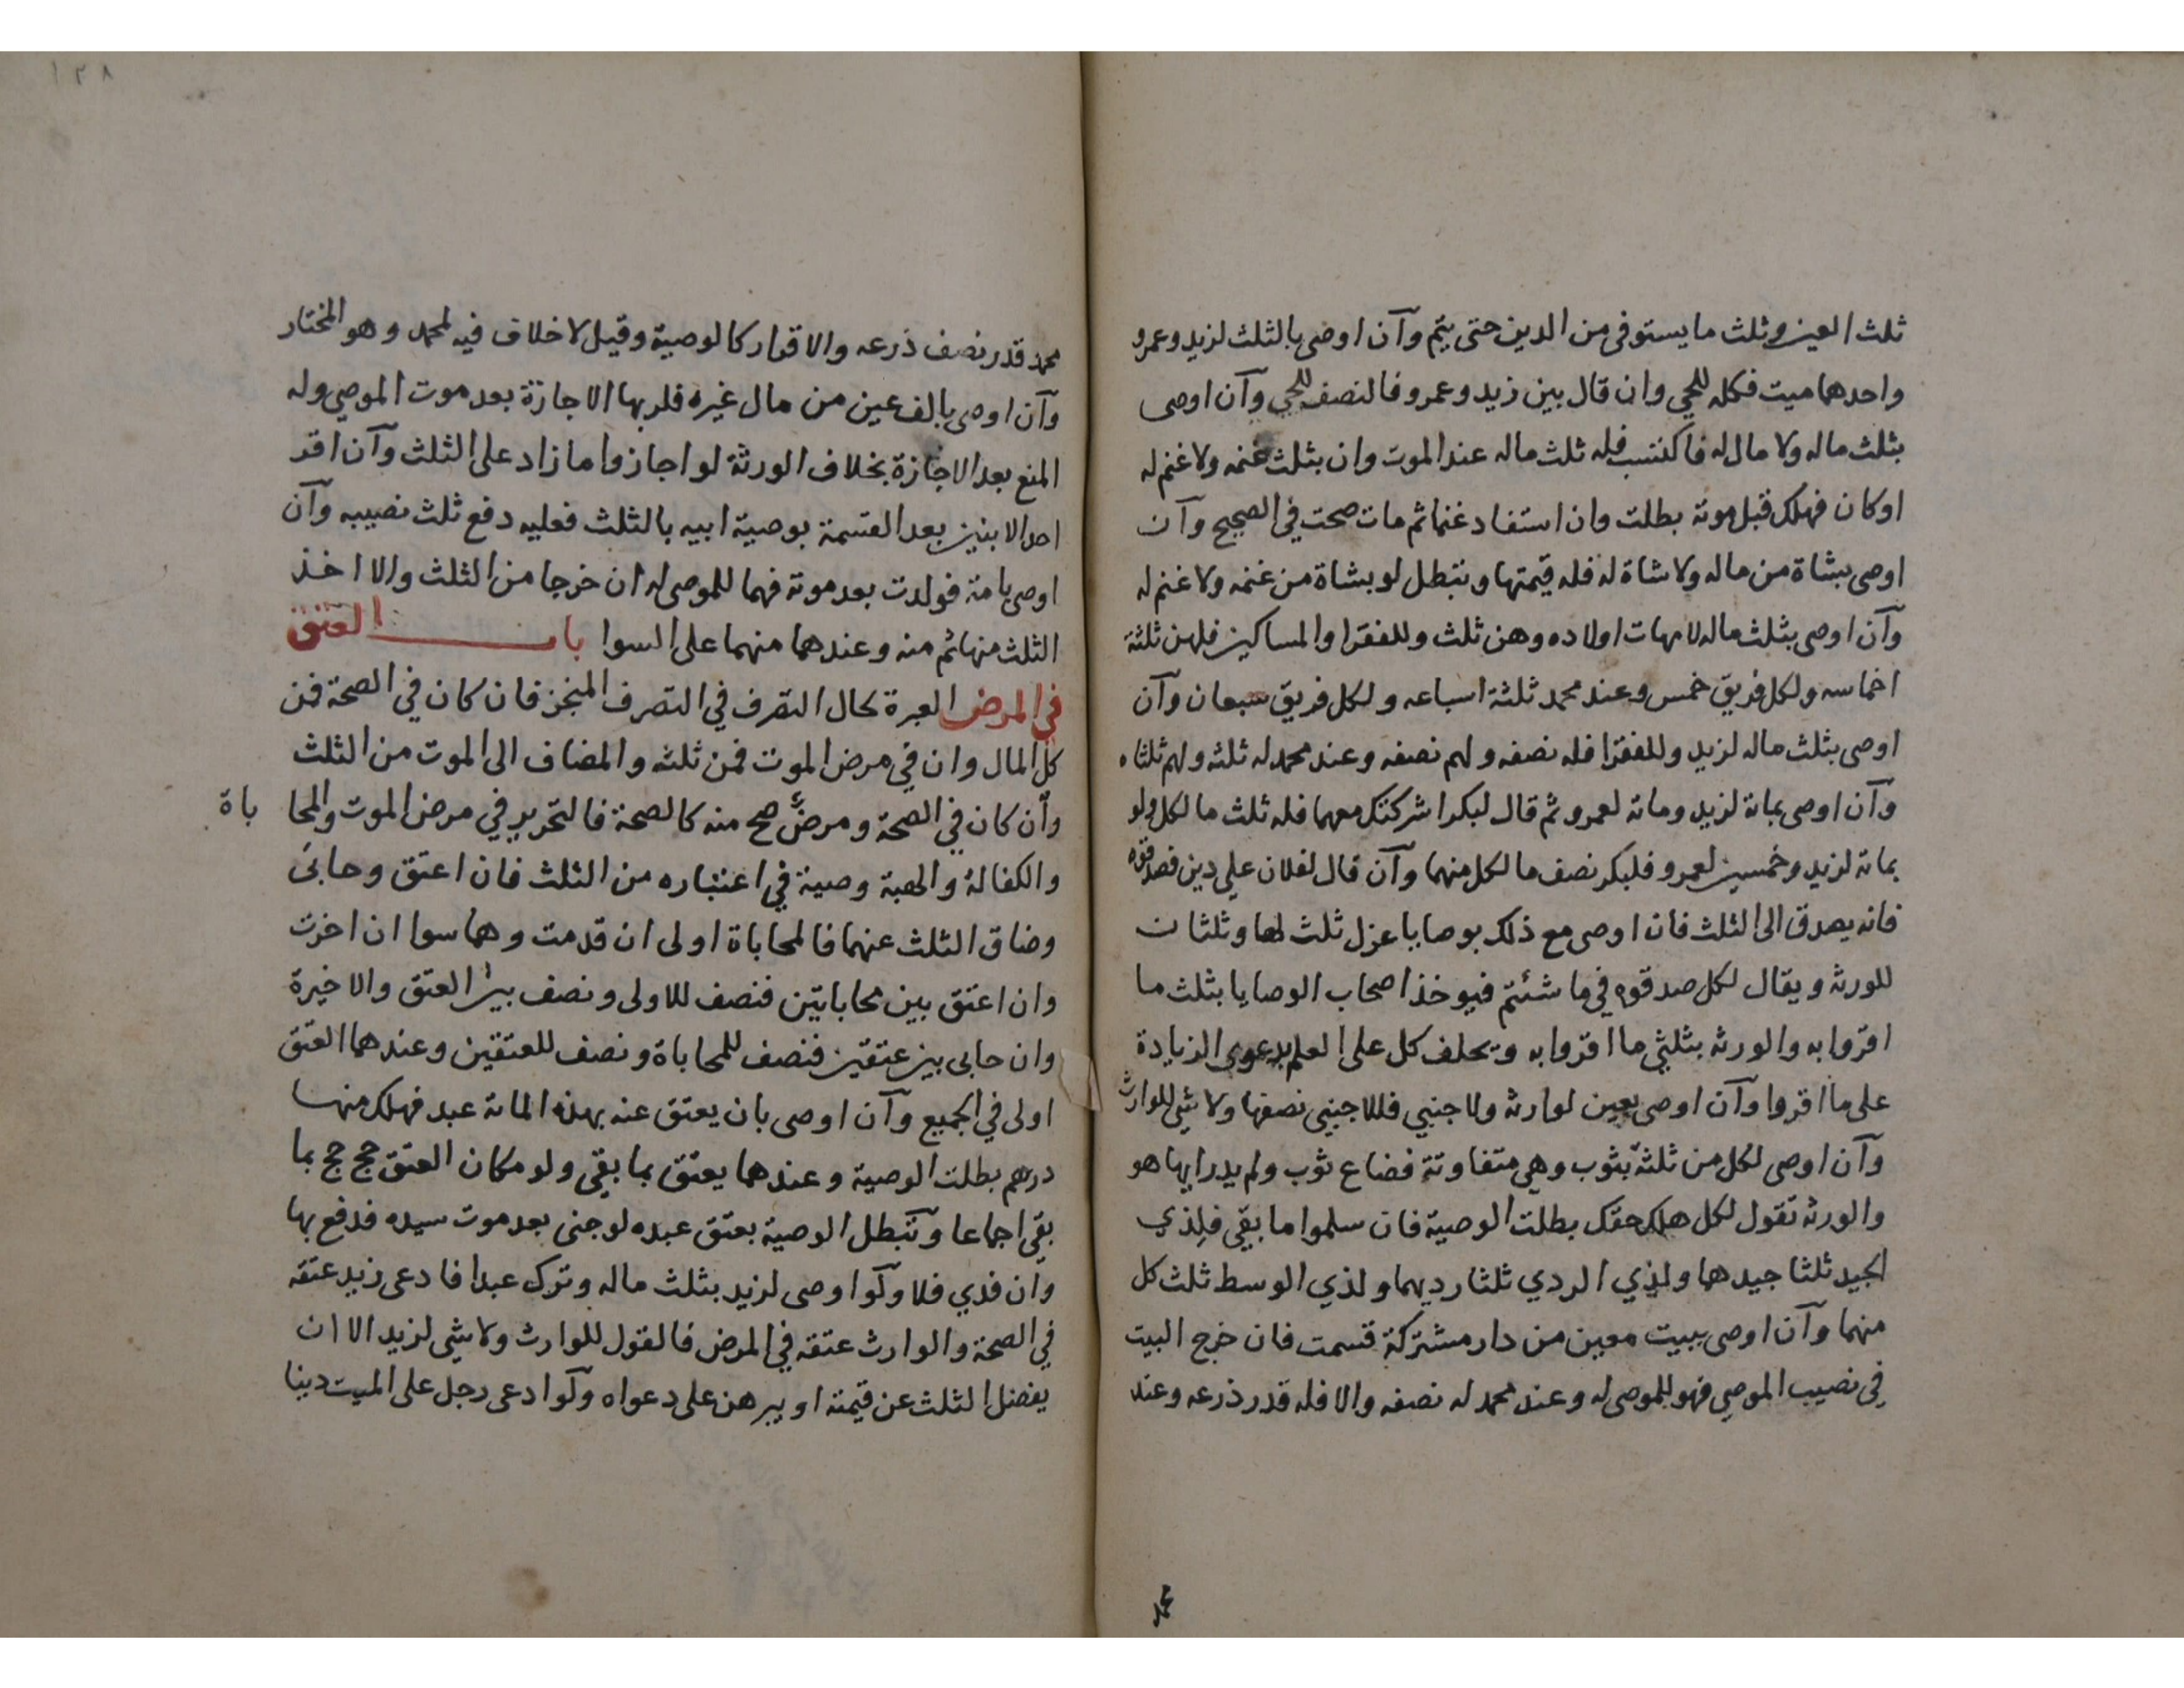 ثلث العين وثلث ما يستوفى من الدين حتى يتم وآن اوصى بالثلث لزيد وعمرو
واحدهما ميت فكله للحي وان قال بين زيد وعمرو فالنصف للحي وآن اوصى
بثلث ماله ولا مال له فاكتسب فله ثلث ماله عند الموت وان بثلث غنمه ولا غنم له
او كان فهلك قبل موته بطلت وان استفاد غنما ثم مات صحت في الصحيح وآن
اوصى بشاة من ماله ولا شاة له فله قيمتها وتبطل لو بشاة من غنمه ولا غنم له
وآن اوصى بثلث ماله لامهات اولاده وهن ثلث وللفقرا والمساكين فلهن ثلثة
اخماسه ولكل فريق خمس وعند محمد ثلثة اسباعه ولكل فريق سبعان وآن
اوصى بثلث ماله لزيد وللفقرا فله نصفه ولهم نصفه وعند محمد له ثلثه ولهم ثلثاه
وآن اوصى بمائة لزيد ومائة لعمرو ثم قال لبكر اشركتك معهما فله ثلث ما لكل ولو
بمائة لزيد وخمسين لعمرو فلبكر نصف ما لكل منهما وآن قال لفلان علي دين فصدقوه
فانه يصدق الى الثلث فان اوصى مع ذلك بوصايا عزل ثلث لها وثلثان
للورثه ويقال لكل صدقوه في ما شئتم فيوخذ اصحاب الوصايا بثلث ما
اقروا به والورثه بثلثي ما اقروا به ويحلف كل على العلم بدعوى الزيادة
على ما اقروا وآن اوصى بعين لوارثه ولاجنبي فللاجنبي نصفها ولا شئ للوارث
وآن اوصى لكل من ثلثة بثوب وهي متفاوتة فضاع ثوب ولم يدر ايها هو
والورثه تقول لكل هلك حقك بطلت الوصية فان سلموا ما بقي فلذي
الجيد ثلثا جيدهما ولذي الردي ثلثا رديهما ولذي الوسط ثلث كل
منهما وآن اوصى ببيت معين من دار مشتركة قسمت فان خرج البيت
في نصيب الموصي فهو للموصى له وعند محمد له نصفه والا فله قدر ذرعه وعند
محمد
١٢٨
محمد قدر نصف ذرعه والاقرار كالوصية وقيل لا خلاف فيه لمحمد وهو المختار
وآن اوصى بالف عين من مال غيره فلربها الاجازة بعد موت الموصي وله
المنع بعد الاجازة بخلاف الورثة لو اجازوا ما زاد على الثلث وآن اقر
احد الابنين بعد القسمة بوصية ابيه بالثلث فعليه دفع ثلث نصيبه وآن
اوصى بامة فولدت بعد موته فهما للموصى له ان خرجا من الثلث والا اخذ
الثلث منها ثم منه وعندهما منهما على السوا باب العتق
في المرض العبرة بحال التصرف في التصرف المنجز فان كان في الصحة فمن
كل المال وان في مرض الموت فمن ثلثه والمضاف الى الموت من الثلث
وآن كان في الصحة ومرض صح منه كالصحة فالتحرير في مرض الموت والمحا باة
والكفالة والهبة وصية في اعتباره من الثلث فان اعتق وحابى
وضاق الثلث عنهما فالمحاباة اولى ان قدمت وهما سوا ان اخرت
وان اعتق بين محاباتين فنصف للاولى ونصف بين العتق والاخيرة
وان حابى بين عتقين فنصف للمحاباة ونصف للعتقين وعندهما العتق
اولى في الجميع وآن اوصى بان يعتق عنه بهذه المائة عبد فهلك منها
درهم بطلت الوصية وعندهما يعتق بما بقي ولو مكان العتق حج حج بما
بقي اجماعا وتبطل الوصية بعتق عبده لو جنى بعد موت سيده فدفع بها
وان فدي فلا ولو اوصى لزيد بثلث ماله وترك عبدا فادعى زيد عتقه
في الصحة والوارث عتقه في المرض فالقول للوارث ولا شئ لزيد الا ان
يفضل الثلث عن قيمته او يبرهن على دعواه ولو ادعى رجل على الميت دينا